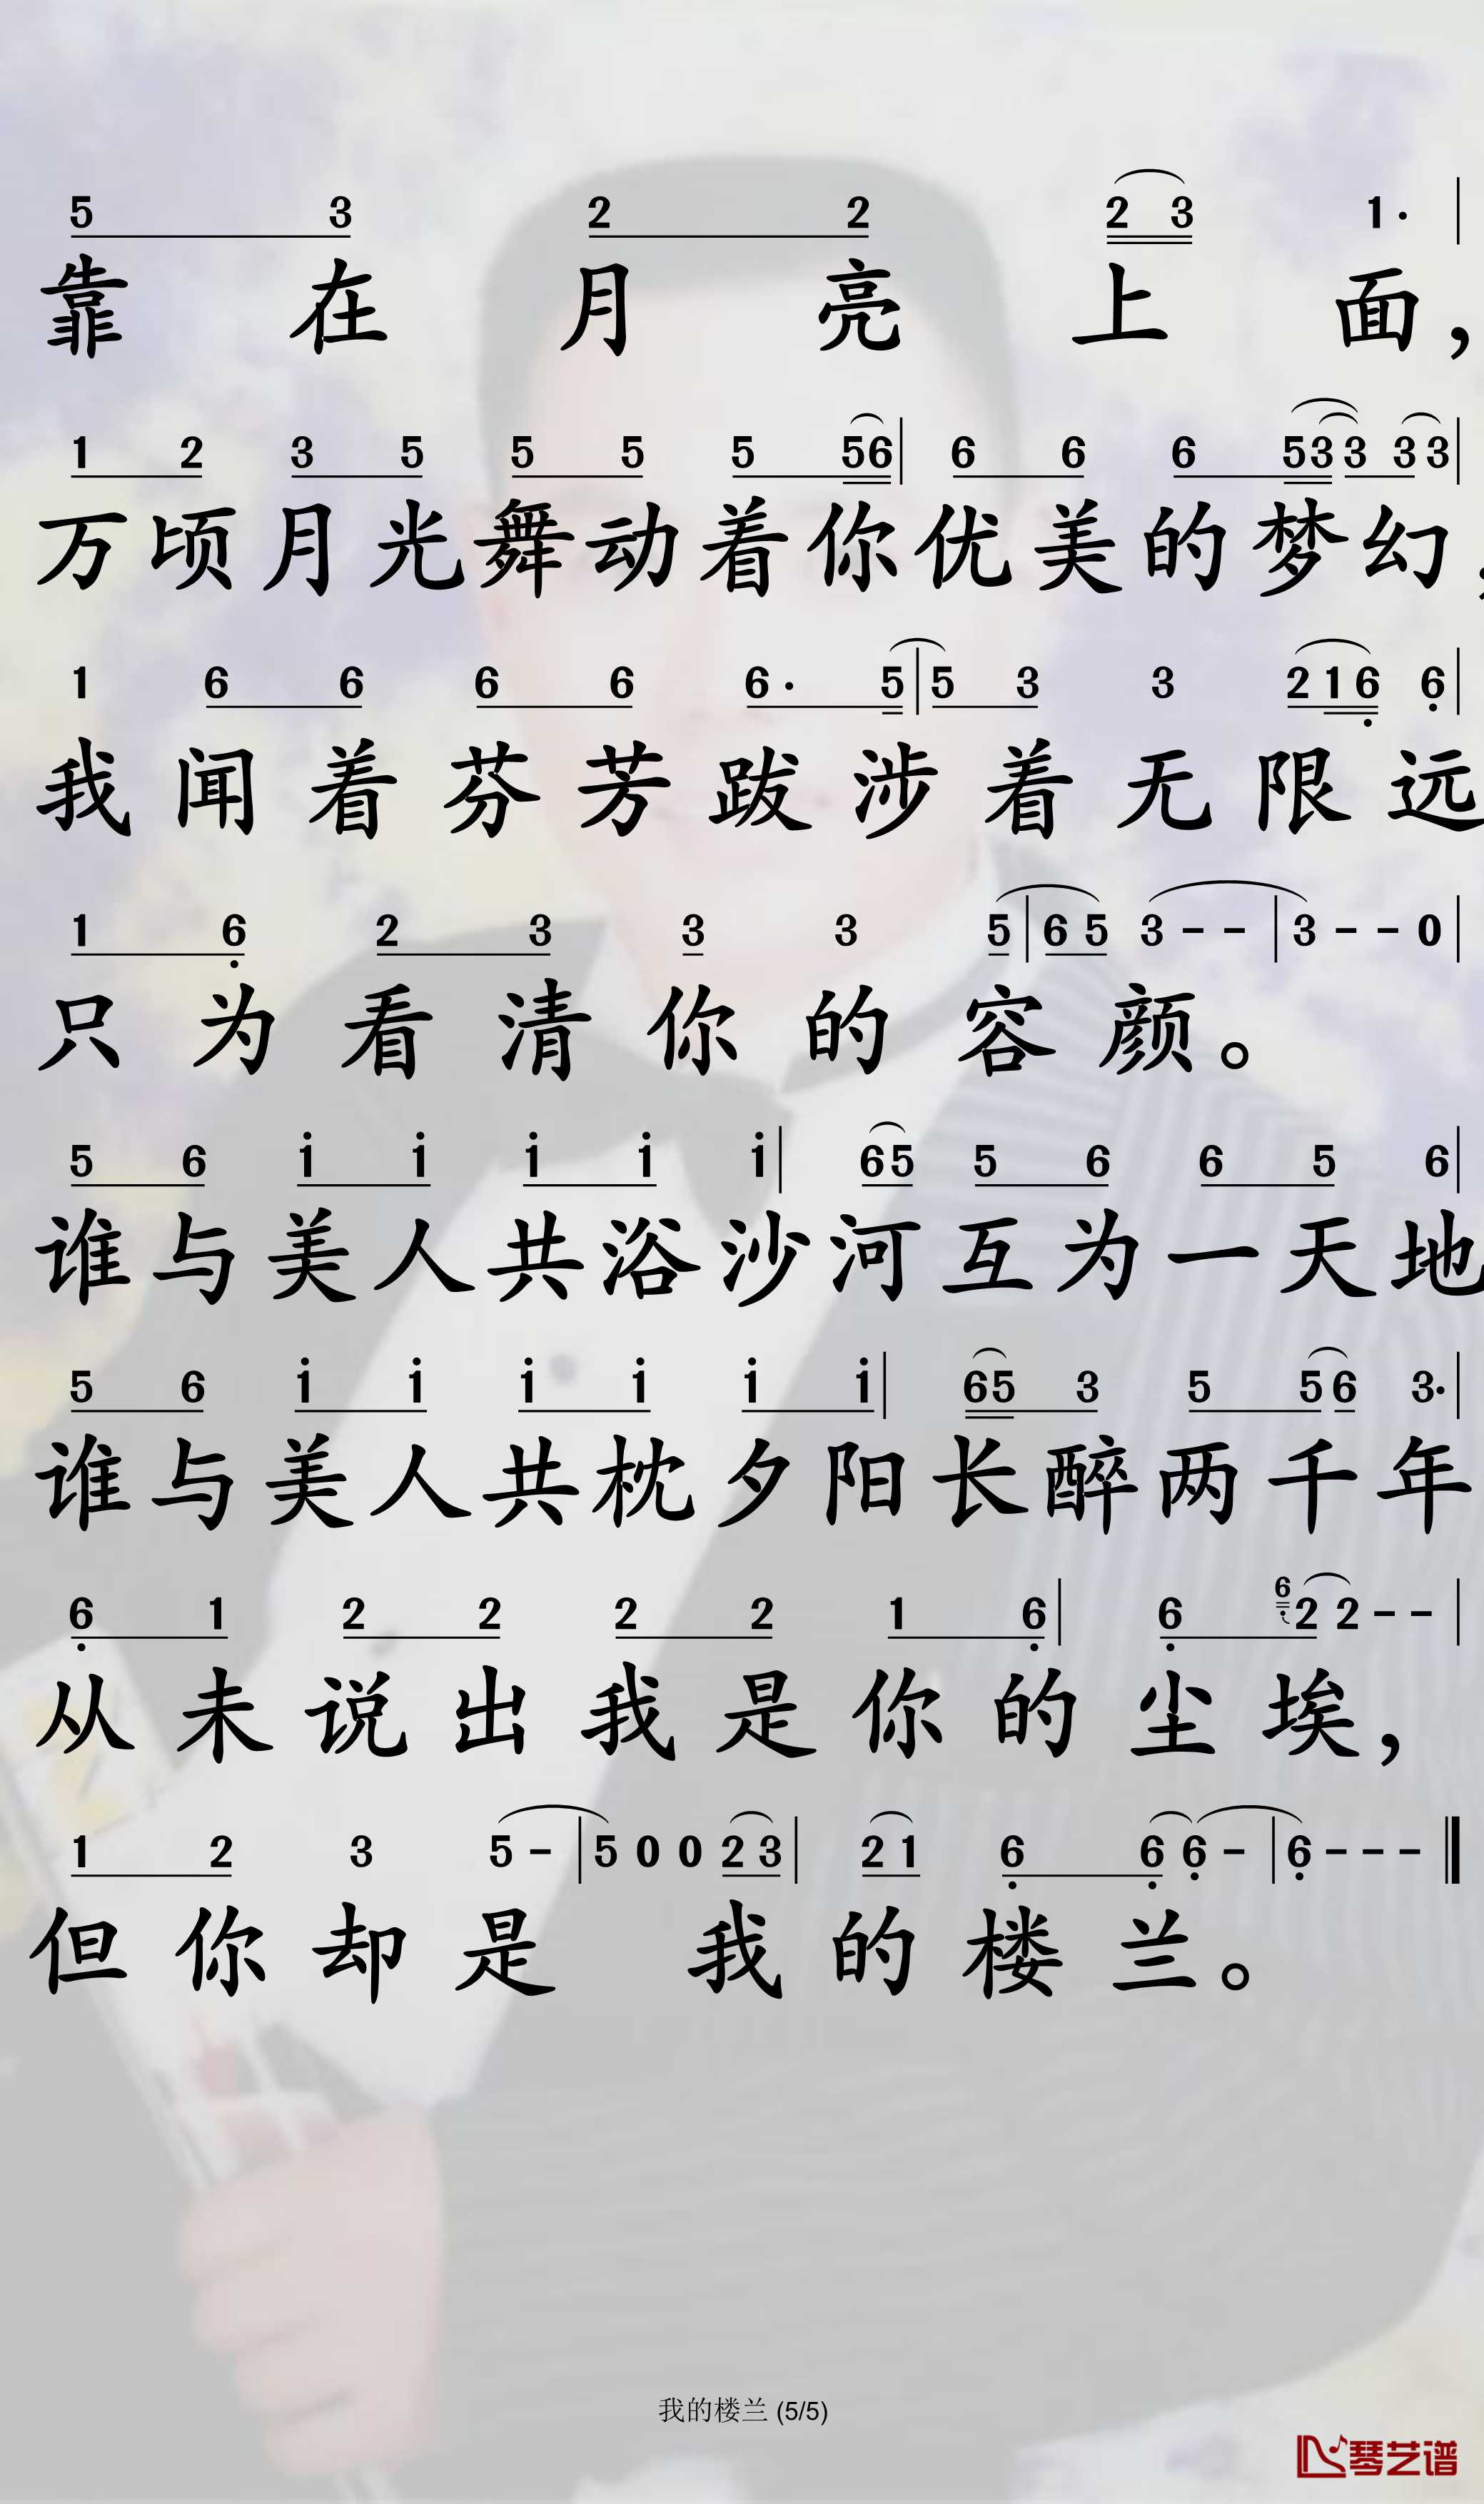 5 3 2 2 2 3 1·
靠在月亮上面，
1 2 3 5 5 5 5 56 6 6 6 53 3 3 3
万顷月光舞动着你优美的梦幻，
1 6 6 6 6 6· 5 5 3 3 2 1 6̣ 6̣
我闻着芬芳跋涉着无限远
1 6̣ 2 3 3 3 5 6 5 3 - - 3 - - 0
只为看清你的容颜。
5 6 i i i i i 65 5 6 6 5 6
谁与美人共浴沙河互为一天地
5 6 i i i i i i 65 3 5 5 6 3·
谁与美人共枕夕阳长醉两千年
6̣ 1 2 2 2 2 1 6̣ 6̣ 6̣ 2 2 - -
从未说出我是你的尘埃，
1 2 3 5 - 5 0 0 2 3 2 1 6̣ 6̣ 6̣ - 6̣ - - -
但你却是 我的楼兰。
我的楼兰 (5/5)
琴艺谱